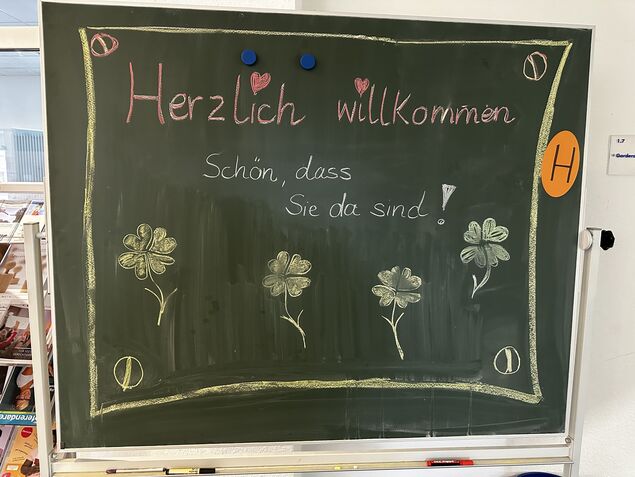 Herzlich willkommen
Schön, dass
Sie da sind!
H
1.7
efendare